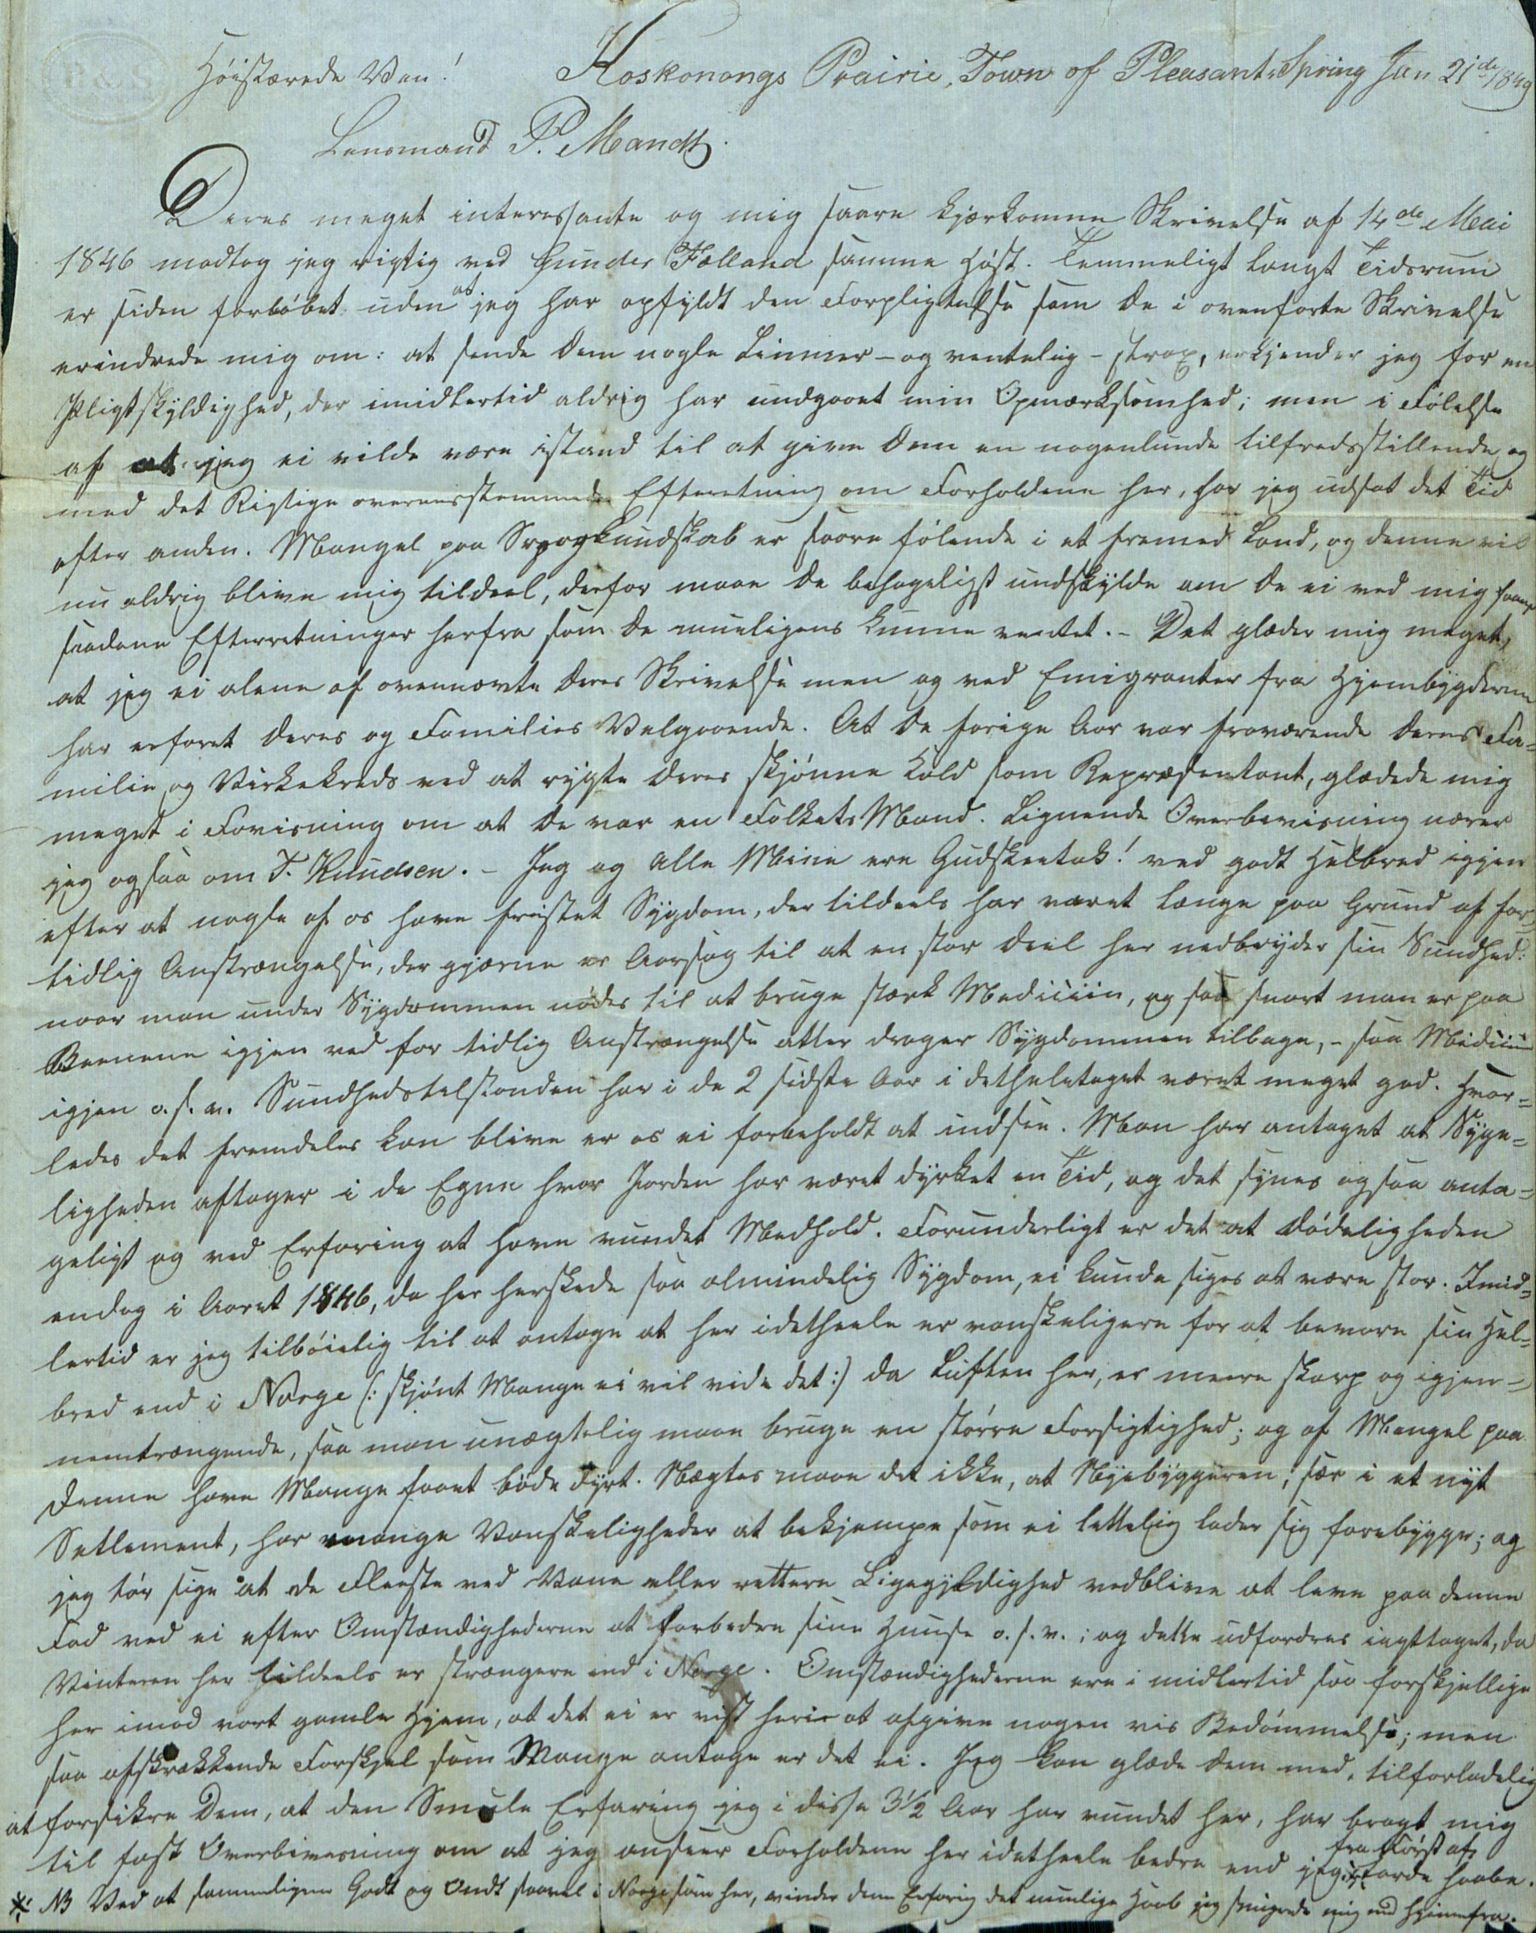 Høistærede Ven! Koskonongs Prairie, Town of Pleasant Spring Jan 21de 1849
Lensmand P. Mandt.
Deres meget interessante og mig saare kjærkomne Skrivelse af 14de Mai
1846 modtog jeg rigtig ved Gunder Felland samme Høst. Temmeligt langt Tidsrum
er siden forløbet uden at jeg har opfyldt den Forpligtelse som De i ovenførte Skrivelse
erindrede mig om: at sende Dem nogle Linnier – og ventelig – strax, erkjender jeg for en
Pligtskyldighed, der imidlertid aldrig har undgaaet min Opmærksomhed; men i Følelse
af at jeg ei vilde være istand til at give Dem en nogenlunde tilfredsstillende og
med det Rigtige overensstemmende Efteretning om Forholdene her, har jeg udsat det Tid
efter anden. Mangel paa Sprogkundskab er saare følende i et fremed Land, og denne vil
nu aldrig blive mig tildeel, derfor maae De behageligst undskylde om De ei ved mig faaer
saadane Efterretninger herfra som De mueligens kunne ventet. – Det glæder mig meget,
at jeg ei alene af ovennævnte Deres Skrivelse men og ved Emigranter fra Hjembygderne
har erfaret Deres og Families Velgaaende. At De forige Aar var fraværende Deres Fa-
milie og Virkekreds ved at rygte Deres skjønne Kald som Repræsentant, glædede mig
meget i Forvisning om at De var en Folkets Mand. Lignende Overbevisning nærer
jeg ogsaa om T. Knudsen. – Jeg og Alle Mine ere Gudskeetak! ved godt Helbred igjen
efter at nogle af os have fristet Sygdom, der tildeels har varet længe paa Grund af for
tidlig Anstrængelse, der gjærne er Aarsag til at en stor Deel her nedbryder sin Sundhed:
naar man under Sygdommen nødes til at bruge stærk Mediciin, og saa snart man er paa
Beenene igjen ved for tidlig Anstrængelse atter drager Sygdommen tilbage, – saa Mediciin
igjen o. s. v. Sundhedstilstanden har i de 2 sidste Aar i detheletaget været meget god. Hvor-
ledes det fremdeles kan blive er os ei forbeholdt at indsee. Man har antaget at Syge-
ligheden aftager i de Egne hvor Jorden har været dyrket en Tid, og det synes ogsaa anta-
geligt og ved Erfaring at have vundet Medhold. Forunderligt er det at Dødeligheden
endog i Aaret 1846, da her herskede saa almindelig Sygdom, ei kunde siges at være stor. Imid-
lertid er jeg tilbøielig til at antage at her idetheele er vanskeligere for at bevare sin Hel-
bred end i Norge (: skjønt Mange ei vil vide det :) da Luften her, er meere skarp og igjen-
nemtrængende, saa man unægtelig maae bruge en større Forsigtighed; og af Mangel paa
denne have Mange faaet bøde dyrt. Nægtes maae det ikke, at Nyebyggeren, især i et nyt
Setlement, har mange Vanskeligheder at bekjempe som ei lettelig lader sig forebygge; og
jeg tør sige at de Fleeste ved Vane eller rettere Ligegyldighed vedblive at leve paa denne
Fod ved ei efter Omstændighederne at forbedre sine Huuse o. s. v.; og dette udfordres iagttaget, da
Vinteren her tildeels er strængere end i Norge. Omstændighederne ere imidlertid saa forskjellige
her imod vort gamle Hjem, at det ei er vist heri at afgive nogen vis Bedømmelse; men
saa afskrækkende Forskjel som Mange antage er det ei. Jeg kan glæde Dem med, tilforladelig
at forsikre Dem, at den Smule Erfaring jeg i disse 3½ Aar har vundet her, har bragt mig
til fast Overbevisning om at jeg anseer Forholdene her idetheele bedre end jeg fra Først af turde haabe.
* NB Ved at sammenligne Godt og Ondt saavel i Norge som her, vinder denne Erfaring det muelige Haab jeg smigrede mig med hjemmefra.